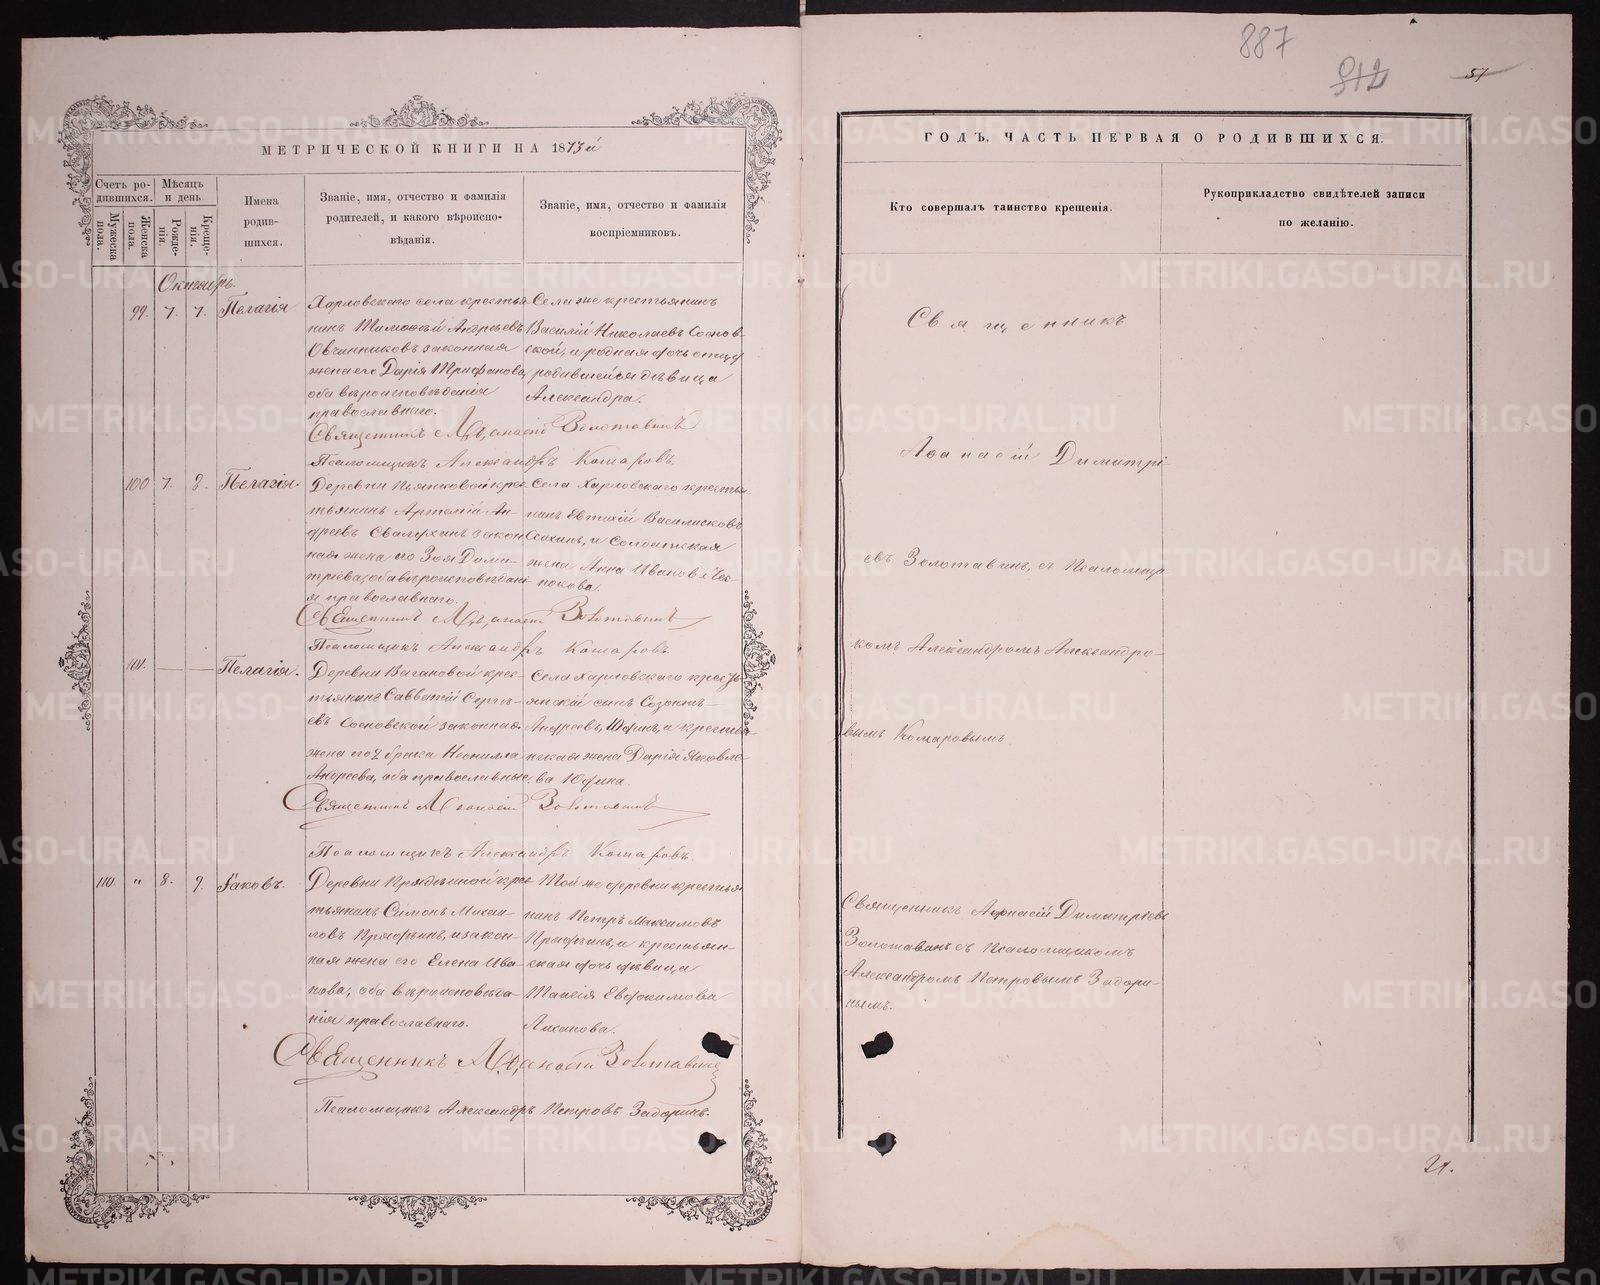 887
912
51
МЕТРИЧЕСКОЙ КНИГИ НА 1873й
Счетъ ро-
дившихся.
Мужеска
пола.
Женска
пола.
Мѣсяцъ
и день.
Рожде-
нія.
Креще-
нія.
Имена
родив-
шихся.
Званіе, имя, отчество и фамилія
родителей, и какого вѣроиспо-
вѣданія.
Званіе, имя, отчество и фамилія
воспріемниковъ.
Октябрь.
99. 7. 7. Пелагія
Харловскаго села крестья
нинъ Тимофей Андреевъ
Овчинниковъ законная
жена его Дарія Трифонова,
оба вѣроисповѣданія
православнаго.
Села же крестьянинъ
Василій Николаевъ Соснов-
ской, и родная дочь отца
родившейся дѣвица
Александра.
Священникъ Аѳанасій Золотавинъ
Псаломщикъ Александръ Комаровъ.
100 7. 8. Пелагія.
Деревни Пьянковой крес
тьянинъ Артемій Ан-
дреевъ Свалухинъ закон
ная жена его Зоя Дими-
тріева, оба вѣроисповѣдані
я православнаго.
Села Харловскаго крестья
нинъ Евтихій Василисковъ
и Солдатская
жена Анна Иванова
Священникъ Аѳанасій Золотавинъ
Псаломщикъ Александръ Комаровъ
101. — — Пелагія.
Деревни Вагановой крес-
тьянинъ Савватій Сергѣ-
евъ Сосновской законная
жена его 2 брака Неонилла
Андреева, оба православные.
Села Харловскаго кресть
янскій сынъ Созонтъ
Андреевъ Юдинъ, и крестья-
нская жена Дарія Яковле-
ва Юдина
Священникъ Аѳанасій Золотавинъ
Псаломщикъ Александръ Комаровъ
110. " 8. 9. Іаковъ.
Деревни Прядеиной крес
тьянинъ Симонъ Михаи-
ловъ Прядеинъ, и закон-
ная жена его Елена Ива-
нова, оба вѣроисповѣда-
нія православнаго.
Той же деревни крестья
нинъ Петръ Максимовъ
Прядеинъ, и крестьян-
ская дочь дѣвица
Таисія Евдокимова
Священникъ Аѳанасій Золотавинъ
Псаломщикъ Александръ Петровъ Задоринъ.
ГОДЪ, ЧАСТЬ ПЕРВАЯ О РОДИВШИХСЯ.
Кто совершалъ таинство крещенія.
Рукоприкладство свидѣтелей записи
по желанію.
Священникъ
Аѳанасій Димитрі-
евъ Золотавинъ, съ Псаломщи-
комъ Александромъ Александро-
вымъ Комаровымъ
Священникъ Аѳанасій Димитріевъ
Золотавинъ съ Псаломщикомъ
Александромъ Петровымъ Задори-
нымъ.
21.
METRIKI.GASO-URAL.RU